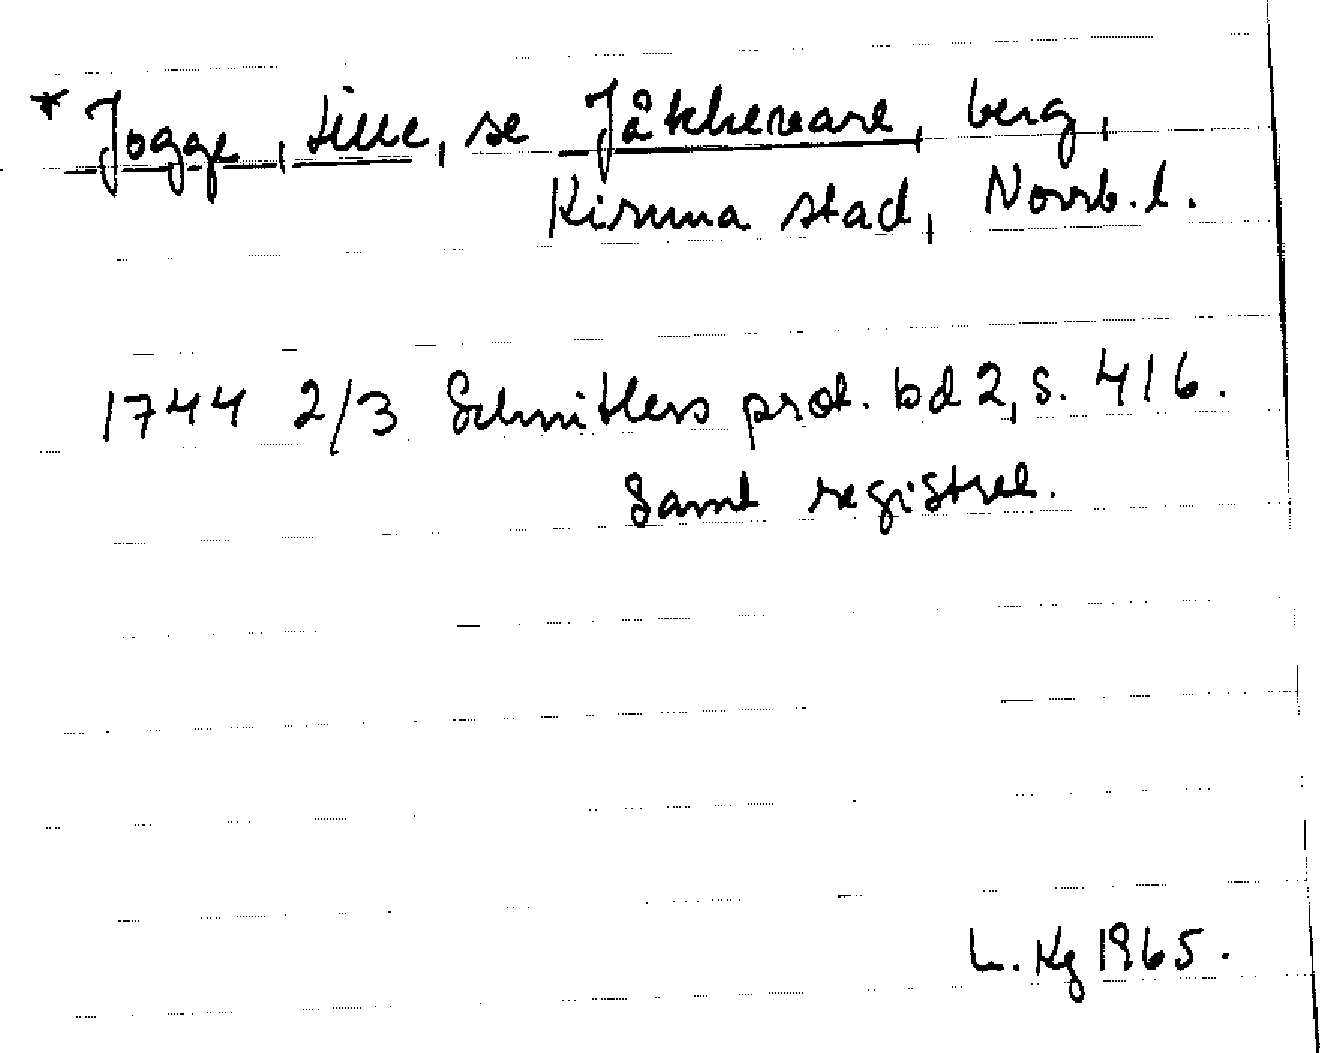 * Jogge, Lille, se Jåkkevare, berg,
Kiruna stad, Norrb. l.
1744 2/3 Schnitlers prot. bd 2, s. 416.
Samt registret.
L. Kg 1965.